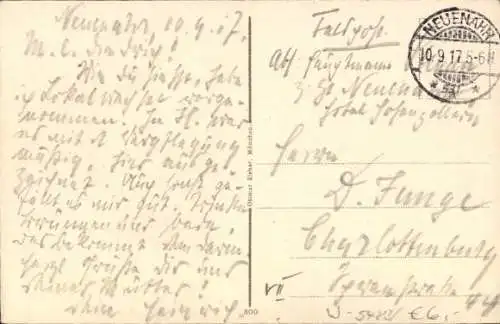 Neuenahr, 10.9.17.
M. l. Friedrich!
Wie du siehst, habe
ich Lokalwechsel vorge-
nommen. In Fl. war
es mit d. Verpflegung
mäßig, hier ausge-
zeichnet. Auch sonst ge-
fällt es mir gut. Trinke
Brunnen und bade,
das bekommt dem Darm.
Herzl. Grüße dir und
deiner Mutter!
Dein Heinrich
Feldpost.
Abs. Hauptmann
z. Zt. Neuenahr
Hotel Hohenzollern
NEUENAHR
10.9.17.5-6N
Herrn
D. Junge
Charlottenburg
VII
Ottmar Zieher, München
800
€6,-